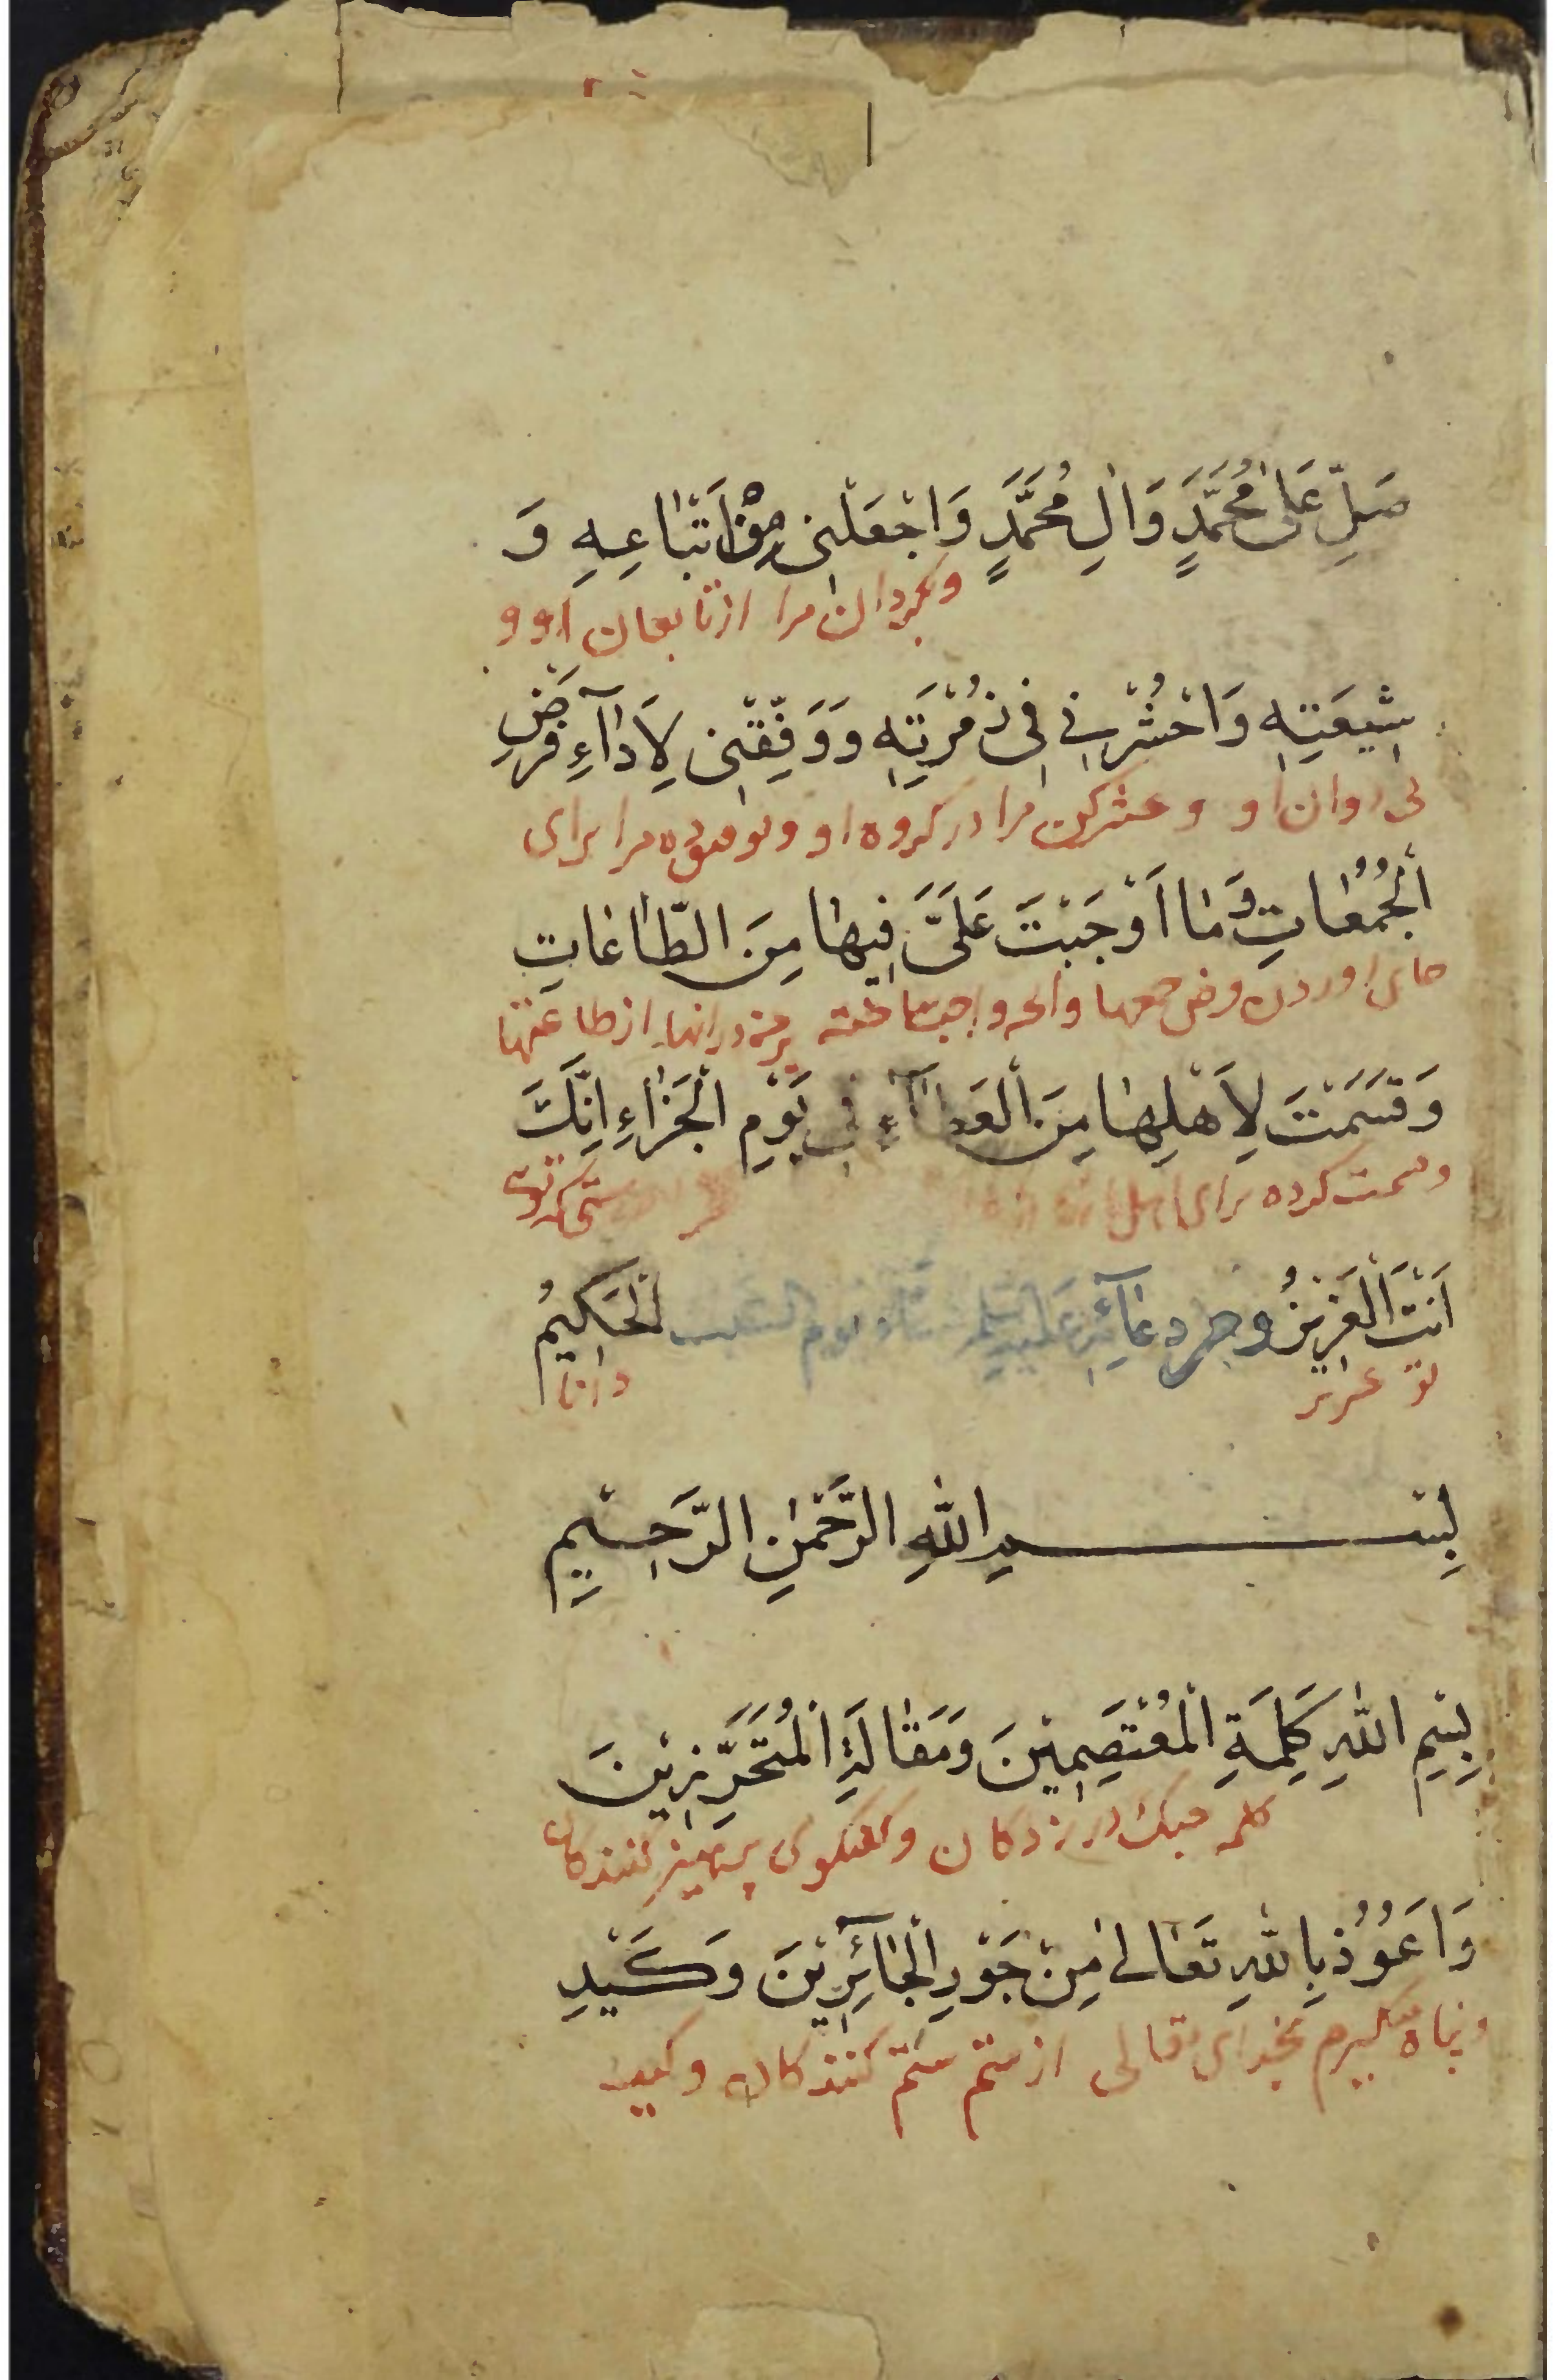 صَلِّ عَلىٰ مُحَمَّدٍ وَاٰلِ مُحَمَّدٍ وَاجْعَلْنى مِنْ اَتْبٰاعِهِ وَ
وبگردان مرا از تابعان او و
شِيعَتِهِ وَاحْشُرْنِى فِى زُمْرَتِهِ وَوَفِّقْنِى لِاَدٰآءِ فَرْضِ
پی روان او و حشر کن مرا در کروه او وتوفیق ده مرا برای
اَلْجُمُعٰاتِ وَمٰا اَوْجَبْتَ عَلَىَّ فِيهٰا مِنَ الطّٰاعٰاتِ
اوردن فرض جمعها وانچه واجب ساخته بر من در انها از طاعتها
وَقَسَمْتَ لِاَهْلِهٰا مِنَ الْعَطٰآءِ فِى يَوْمِ الْجَزٰاءِ اِنَّكَ
وقسمت کرده برای اهل
اَنْتَ الْعَزِيزُ ومن دعٰآئه عليه السلم يوم الْحَكِيمُ
تو عزیز دانا
بِسْمِ اللّٰهِ الرَّحْمٰنِ الرَّحِيْمِ
بِسْمِ اللّٰهِ كَلِمَةِ الْمُعْتَصِمِيْنَ وَمَقٰالَةِ الْمُتَحَرِّزِيْنَ
کلمه چنک در زدکان وکفتکوی پرهیز کنندکان
وَاَعُوُذُ بِاللّٰهِ تَعٰالىٰ مِنْ جَوْرِ الْجٰآئِرِيْنَ وَكَيْدِ
وپناه میکیرم بخدای تعالی از ستم ستم کنندکان وکید